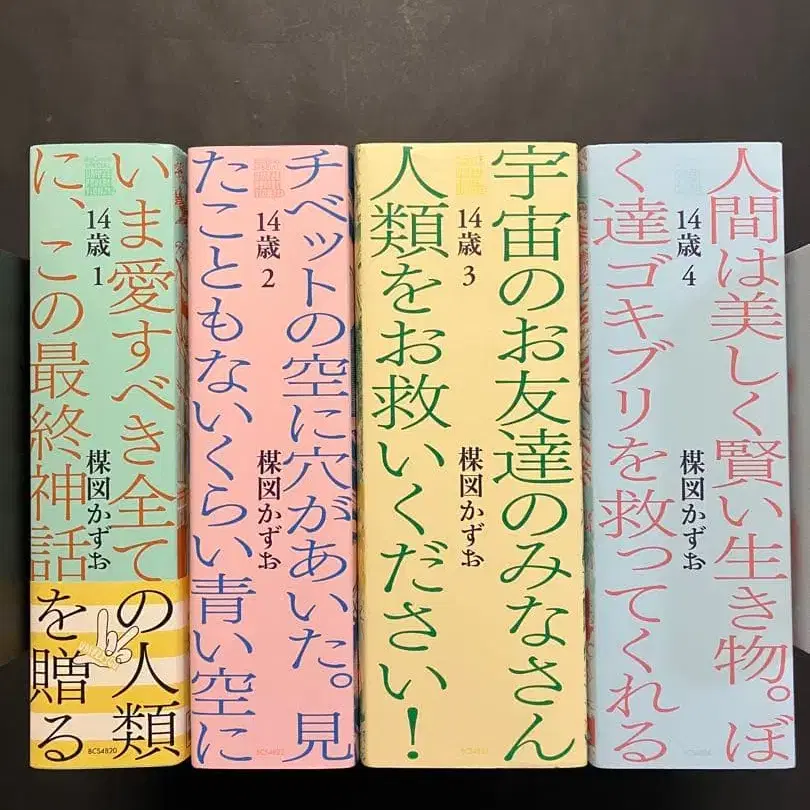 いま愛すべき全ての人類
に、この最終神話を贈る
14歳 1
楳図かずお
BCS4820
チベットの空に穴があいた。見
たこともないくらい青い空に
14歳 2
楳図かずお
宇宙のお友達のみなさん
人類をお救いください！
14歳 3
楳図かずお
人間は美しく賢い生き物。ぼ
く達ゴキブリを救ってくれる
14歳 4
楳図かずお